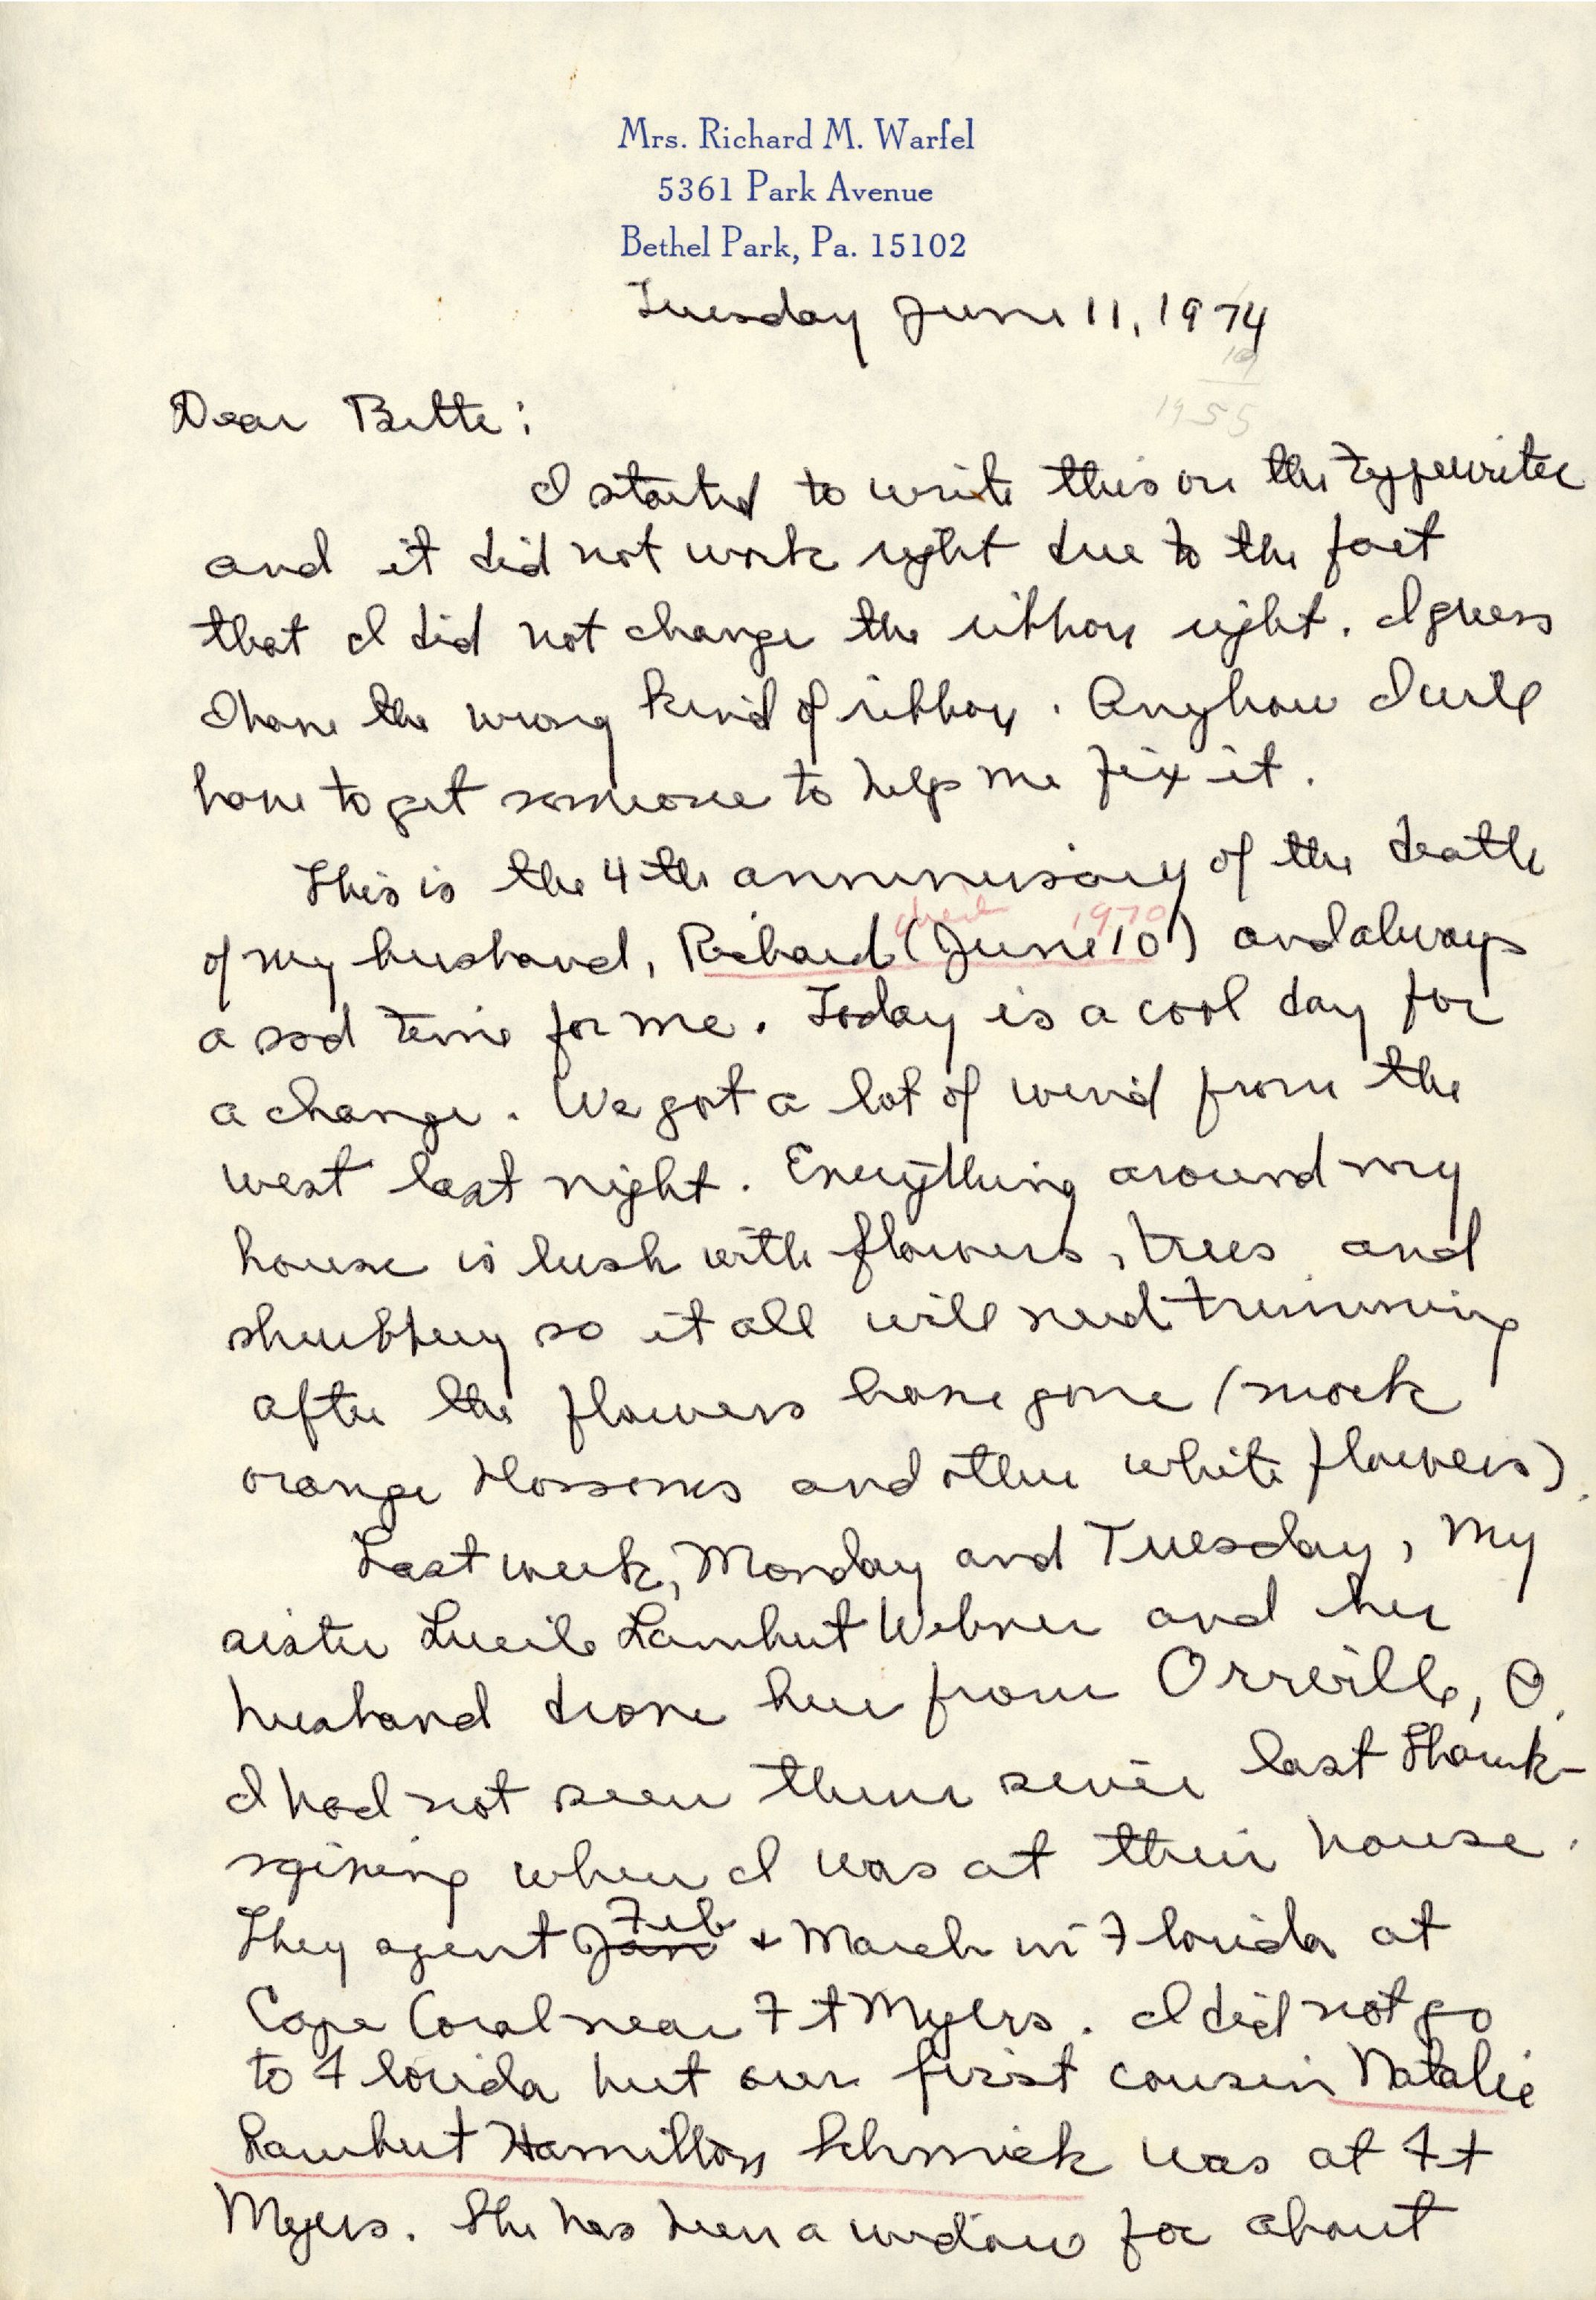 Mrs. Richard M. Warfel
5361 Park Avenue
Bethel Park, Pa. 15102
Tuesday June 11, 1974
19
1955
Dear Bette:
I started to write this on the typewriter
and it did not work right due to the fact
that I did not change the ribbon right. I guess
I have the wrong kind of ribbon. Anyhow I will
have to get someone to help me fix it.
This is the 4th anniversary of the death
died 1970
of my husband, Richard (June 10) and always
a sad time for me. Today is a cool day for
a change. We got a lot of wind from the
west last night. Everything around my
house is lush with flowers, trees and
shrubbery so it all will need trimming
after the flowers have gone (mock
orange blossoms and other white flowers).
Last week, Monday and Tuesday, my
sister Lucile Lambert Webner and her
husband drove here from Orrville, O.
I had not seen them since last Thank-
sgiving when I was at their house.
Feb
They spent Jan & March in Florida at
Cape Coral near Ft Myers. I did not go
to Florida but our first cousin Natalie
Lambert Hamilton Schmick was at Ft
Myers. She has been a widow for about